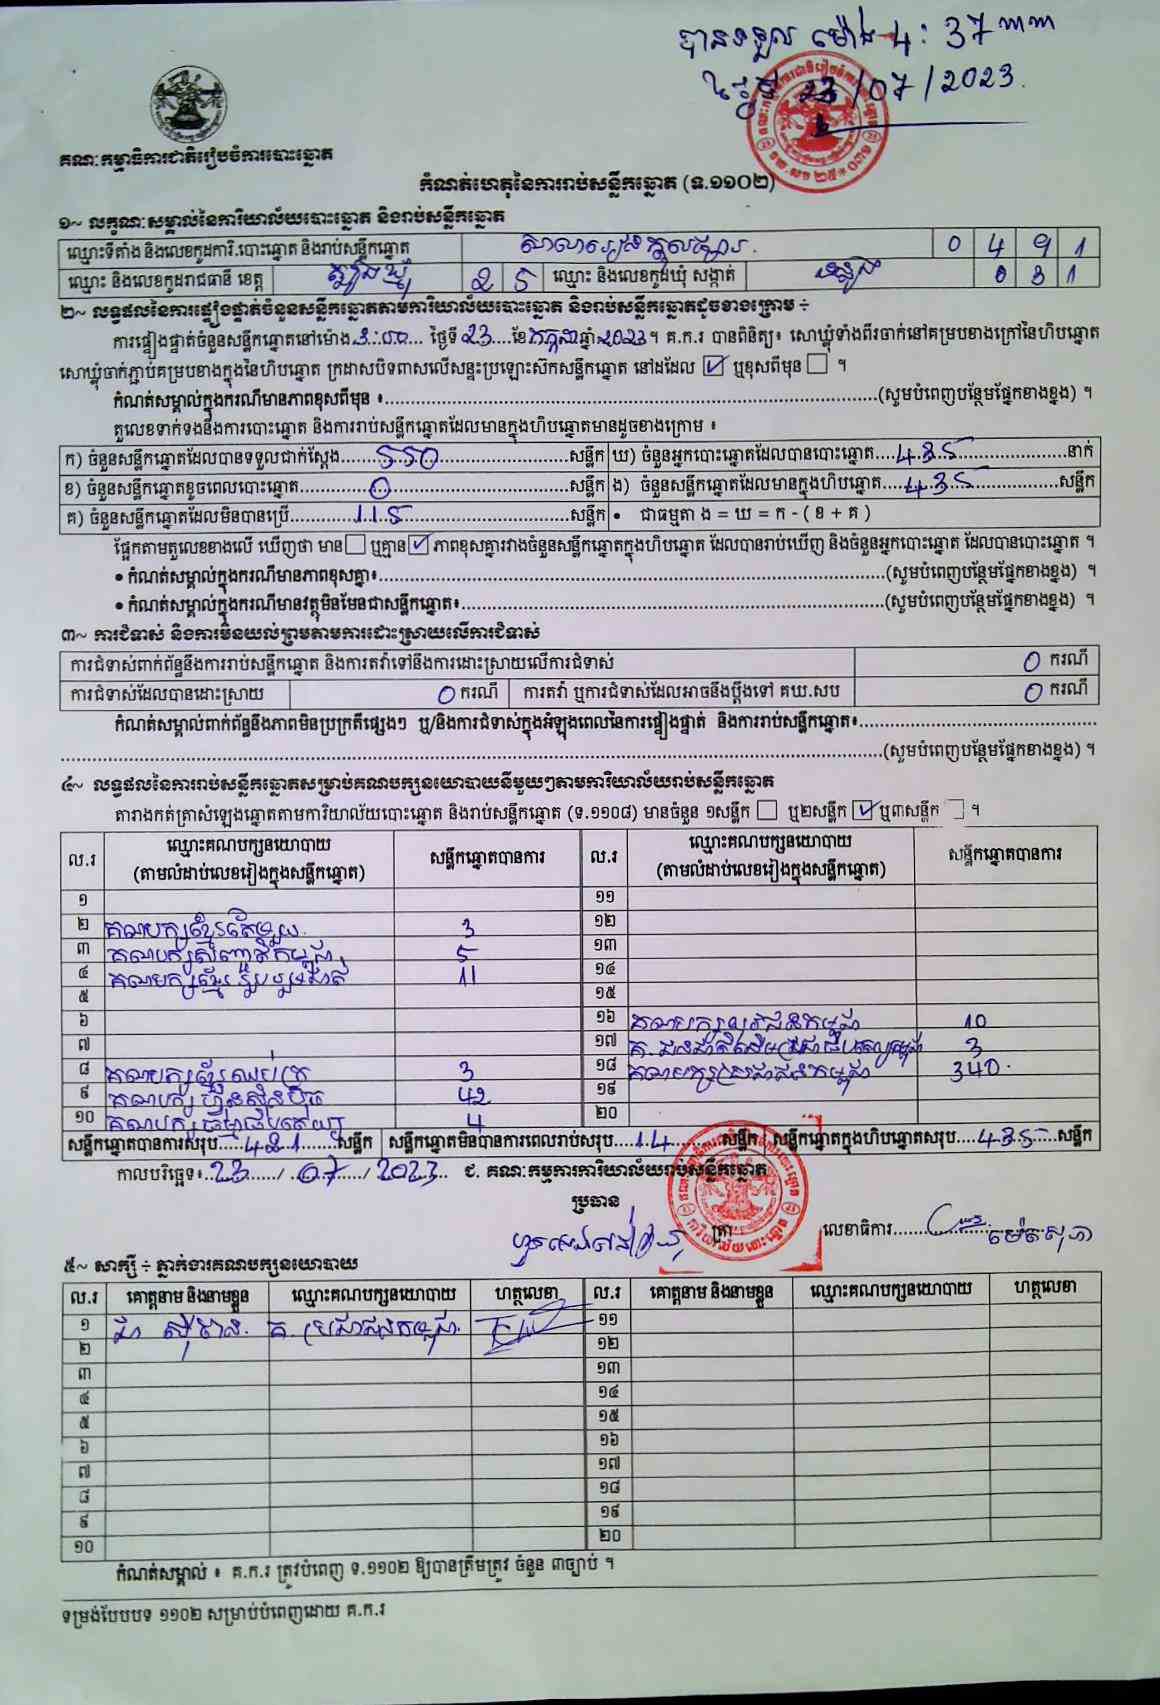 បានទទួល ម៉ោង 4:37
ថ្ងៃទី 23/07/2023.
គណៈកម្មាធិការជាតិរៀបចំការបោះឆ្នោត
កំណត់ហេតុនៃការរាប់សន្លឹកឆ្នោត (ទ.១១០២)
១~ លក្ខណៈសម្គាល់នៃការិយាល័យបោះឆ្នោត និងរាប់សន្លឹកឆ្នោត
ឈ្មោះទីតាំង និងលេខកូដការិ.បោះឆ្នោត និងរាប់សន្លឹកឆ្នោត 0 4 9 1
ឈ្មោះ និងលេខកូដរាជធានី ខេត្ត ត្បូងឃ្មុំ 2 5 ឈ្មោះ និងលេខកូដឃុំ សង្កាត់ 0 3 1
២~ លទ្ធផលនៃការផ្ទៀងផ្ទាត់ចំនួនសន្លឹកឆ្នោតតាមការិយាល័យបោះឆ្នោត និងរាប់សន្លឹកឆ្នោតដូចខាងក្រោម ÷
ការផ្ទៀងផ្ទាត់ចំនួនសន្លឹកឆ្នោតនៅម៉ោង 3:00 ថ្ងៃទី 23 ខែ កក្កដា ឆ្នាំ 2023 ។ គ.ក.រ បានពិនិត្យ៖ សោឃ្លុំទាំងពីរចាក់នៅគម្របខាងក្រៅនៃហិបឆ្នោត
សោឃ្លុំចាក់ភ្ជាប់គម្របខាងក្នុងនៃហិបឆ្នោត ក្រដាសបិទពាសលើសន្ទះប្រឡោះស៊កសន្លឹកឆ្នោត នៅដដែល ☑ ឬខុសពីមុន ☐ ។
កំណត់សម្គាល់ក្នុងករណីមានភាពខុសពីមុន ៖ (សូមបំពេញបន្ថែមផ្នែកខាងខ្នង) ។
តួលេខទាក់ទងនឹងការបោះឆ្នោត និងការរាប់សន្លឹកឆ្នោតដែលមានក្នុងហិបឆ្នោតមានដូចខាងក្រោម ៖
ក) ចំនួនសន្លឹកឆ្នោតដែលបានទទួលជាក់ស្តែង 550 សន្លឹក ឃ) ចំនួនអ្នកបោះឆ្នោតដែលបានបោះឆ្នោត 435 នាក់
ខ) ចំនួនសន្លឹកឆ្នោតខូចពេលបោះឆ្នោត 0 សន្លឹក ង) ចំនួនសន្លឹកឆ្នោតដែលមានក្នុងហិបឆ្នោត 435 សន្លឹក
គ) ចំនួនសន្លឹកឆ្នោតដែលមិនបានប្រើ 115 សន្លឹក • ជាធម្មតា ង = ឃ = ក - ( ខ + គ )
ផ្អែកតាមតួលេខខាងលើ ឃើញថា មាន ☐ ឬគ្មាន ☑ ភាពខុសគ្នារវាងចំនួនសន្លឹកឆ្នោតក្នុងហិបឆ្នោត ដែលបានរាប់ឃើញ និងចំនួនអ្នកបោះឆ្នោត ដែលបានបោះឆ្នោត ។
• កំណត់សម្គាល់ក្នុងករណីមានភាពខុសគ្នា៖ (សូមបំពេញបន្ថែមផ្នែកខាងខ្នង) ។
• កំណត់សម្គាល់ក្នុងករណីមានវត្ថុមិនមែនជាសន្លឹកឆ្នោត៖ (សូមបំពេញបន្ថែមផ្នែកខាងខ្នង) ។
៣~ ការជំទាស់ និងការមិនយល់ព្រមតាមការដោះស្រាយលើការជំទាស់
ការជំទាស់ពាក់ព័ន្ធនឹងការរាប់សន្លឹកឆ្នោត និងការតវ៉ាទៅនឹងការដោះស្រាយលើការជំទាស់ 0 ករណី
ការជំទាស់ដែលបានដោះស្រាយ 0 ករណី ការតវ៉ា ឬការជំទាស់ដែលអាចនឹងប្តឹងទៅ គឃ.សប 0 ករណី
កំណត់សម្គាល់ពាក់ព័ន្ធនឹងភាពមិនប្រក្រតីផ្សេងៗ ឬ/និងការជំទាស់ក្នុងអំឡុងពេលនៃការផ្ទៀងផ្ទាត់ និងការរាប់សន្លឹកឆ្នោត៖
(សូមបំពេញបន្ថែមផ្នែកខាងខ្នង) ។
៤~ លទ្ធផលនៃការរាប់សន្លឹកឆ្នោតសម្រាប់គណបក្សនយោបាយនីមួយៗតាមការិយាល័យរាប់សន្លឹកឆ្នោត
តារាងកត់ត្រាសំឡេងឆ្នោតតាមការិយាល័យបោះឆ្នោត និងរាប់សន្លឹកឆ្នោត (ទ.១១០៨) មានចំនួន ១សន្លឹក ☐ ឬ២សន្លឹក ☑ ឬ៣សន្លឹក ☐ ។
ល.រ ឈ្មោះគណបក្សនយោបាយ សន្លឹកឆ្នោតបានការ ល.រ ឈ្មោះគណបក្សនយោបាយ សន្លឹកឆ្នោតបានការ
(តាមលំដាប់លេខរៀងក្នុងសន្លឹកឆ្នោត) (តាមលំដាប់លេខរៀងក្នុងសន្លឹកឆ្នោត)
១ ១១
២ គណបក្សខ្មែរតែមួយ 3 ១២
៣ គណបក្សសញ្ជាតិកម្ពុជា 5 ១៣
៤ គណបក្សខ្មែររួបរួមជាតិ 11 ១៤
៥ ១៥
៦ ១៦ គណបក្សយុវជនកម្ពុជា 10
៧ ១៧ គ. ជនជាតិដើមប្រជាធិបតេយ្យកម្ពុជា 3
៨ គណបក្សខ្មែរឈប់ក្រ 3 ១៨ គណបក្សប្រជាជនកម្ពុជា 340
៩ គណបក្សហ៊្វុនស៊ិនប៉ិច 42 ១៩
១០ គណបក្សធម្មាធិបតេយ្យ 4 ២០
សន្លឹកឆ្នោតបានការសរុប 421 សន្លឹក សន្លឹកឆ្នោតមិនបានការពេលរាប់សរុប 14 សន្លឹក សន្លឹកឆ្នោតក្នុងហិបឆ្នោតសរុប 435 សន្លឹក
កាលបរិច្ឆេទ៖ 23 / 07 / 2023 ជ. គណៈកម្មការការិយាល័យរាប់សន្លឹកឆ្នោត
ប្រធាន
ត្រា លេខាធិការ
៥~ សាក្សី ÷ ភ្នាក់ងារគណបក្សនយោបាយ
ល.រ គោត្តនាម និងនាមខ្លួន ឈ្មោះគណបក្សនយោបាយ ហត្ថលេខា ល.រ គោត្តនាម និងនាមខ្លួន ឈ្មោះគណបក្សនយោបាយ ហត្ថលេខា
១ គ. ប្រជាជនកម្ពុជា ១១
២ ១២
៣ ១៣
៤ ១៤
៥ ១៥
៦ ១៦
៧ ១៧
៨ ១៨
៩ ១៩
១០ ២០
កំណត់សម្គាល់ ៖ គ.ក.រ ត្រូវបំពេញ ទ.១១០២ ឱ្យបានត្រឹមត្រូវ ចំនួន ៣ច្បាប់ ។
ទម្រង់បែបបទ ១១០២ សម្រាប់បំពេញដោយ គ.ក.រ